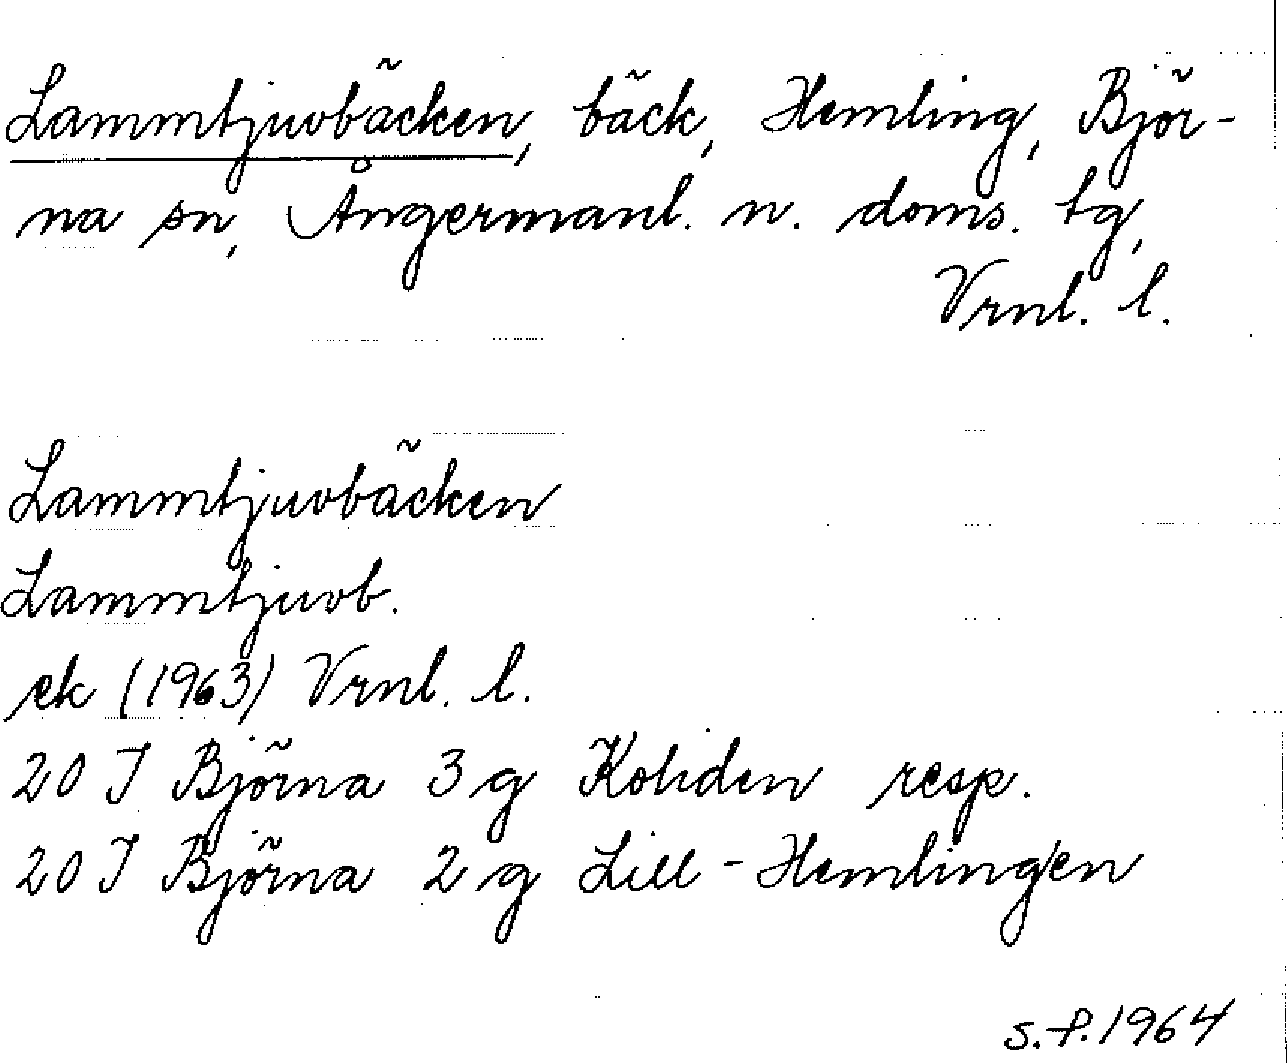 Lammtjuvbäcken, bäck, Hemling, Björ-
na sn, Ångermanl. n. doms. tg,
Vrnl. l.
Lammtjuvbäcken
Lammtjuvb.
ek (1963) Vrnl. l.
20 I Björna 3 g Koliden resp.
20 I Björna 2 g Lill-Hemlingen
s.f. 1964